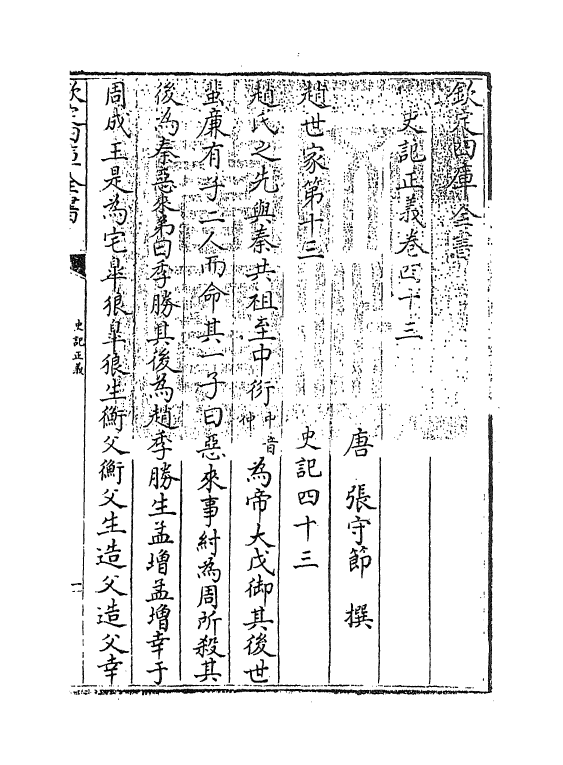 欽定四庫全書
史記正義卷四十三
唐 張守節 撰
趙世家第十三 史記四十三
趙氏之先與秦共祖至中衍中音仲為帝大戊御其後世
蜚廉有子二人而命其一子曰惡來事紂為周所殺其
後為秦惡來弟曰季勝其後為趙季勝生孟增孟增幸于
周成王是為宅臯狼臯狼生衡父衡父生造父造父幸
欽定四庫全書
史記正義
一